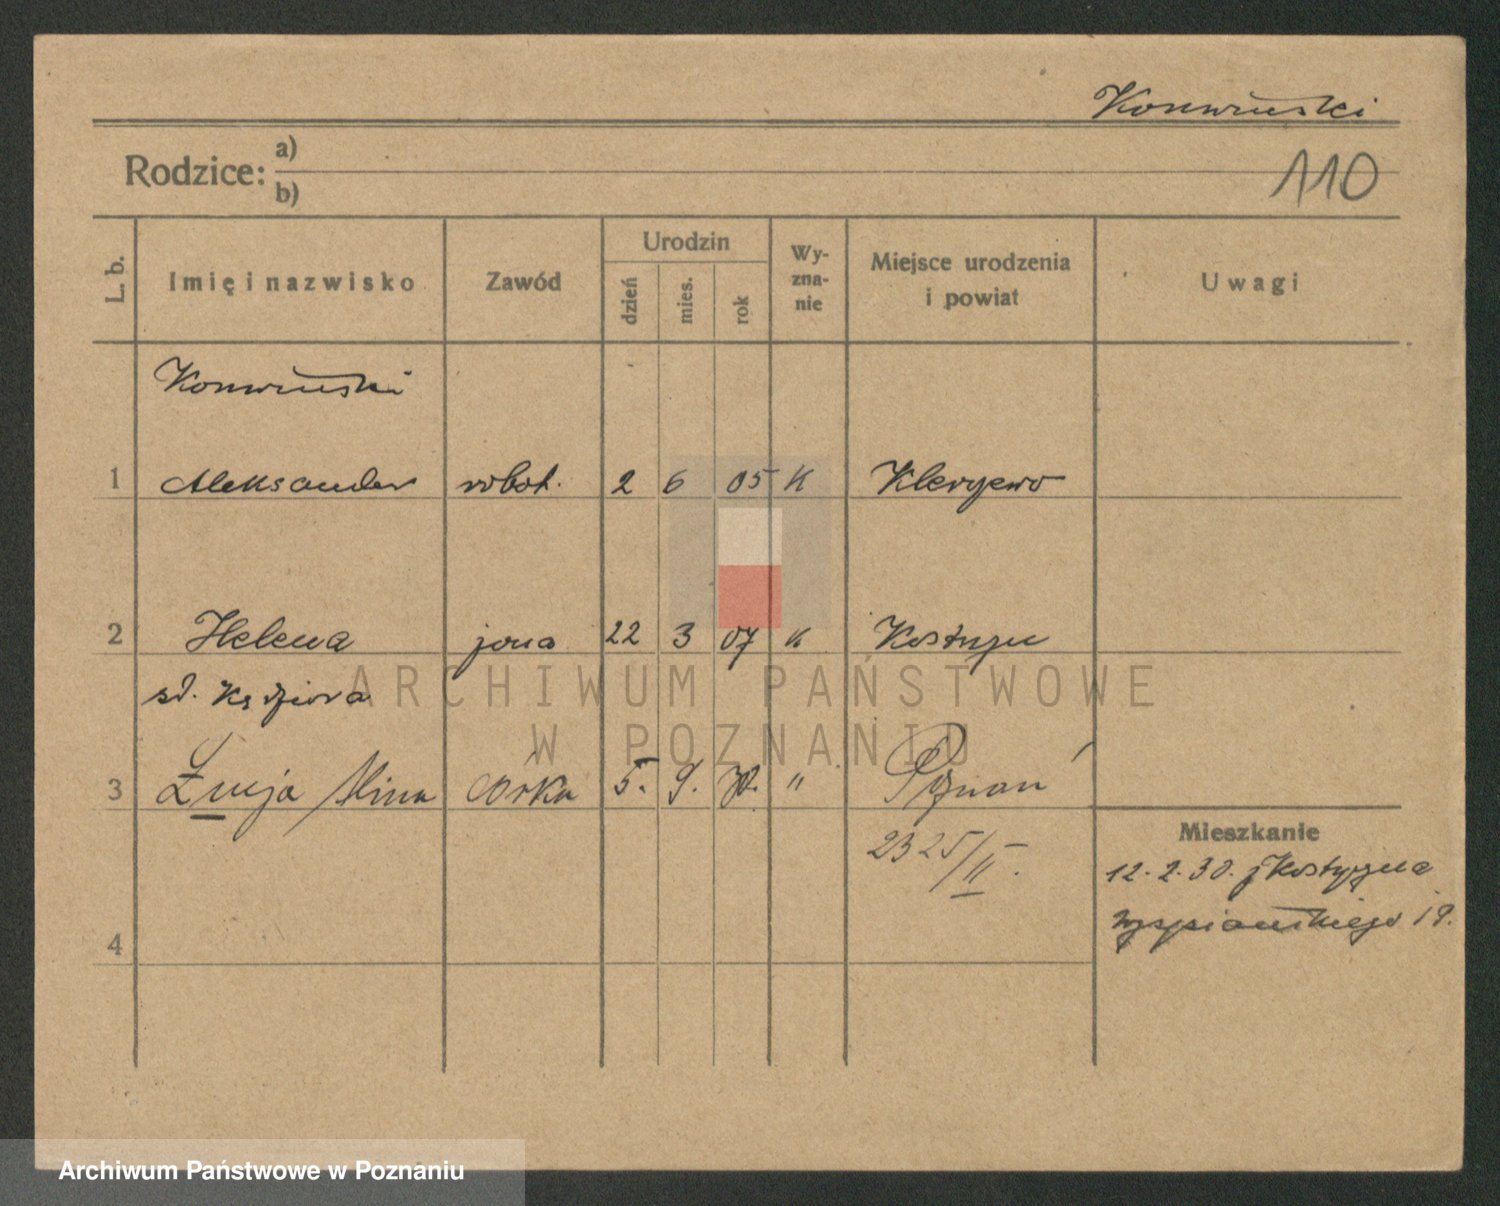 Konwiński
Rodzice: a)
b)
110
L. b. Imię i nazwisko Zawód Urodzin dzień mies. rok Wy-zna-nie Miejsce urodzenia i powiat Uwagi
Konwiński
1 Aleksander robot. 2 6 05 K
2 Helena żona 22 3 07 K
zd. Kędziora
3 Łucja Alina córka 5. 9. " Poznań
2325/II.
Mieszkanie
12.2.30. z Kostrzyna
Wyspiańskiego 19.
4
ARCHIWUM PAŃSTWOWE
W POZNANIU
Archiwum Państwowe w Poznaniu